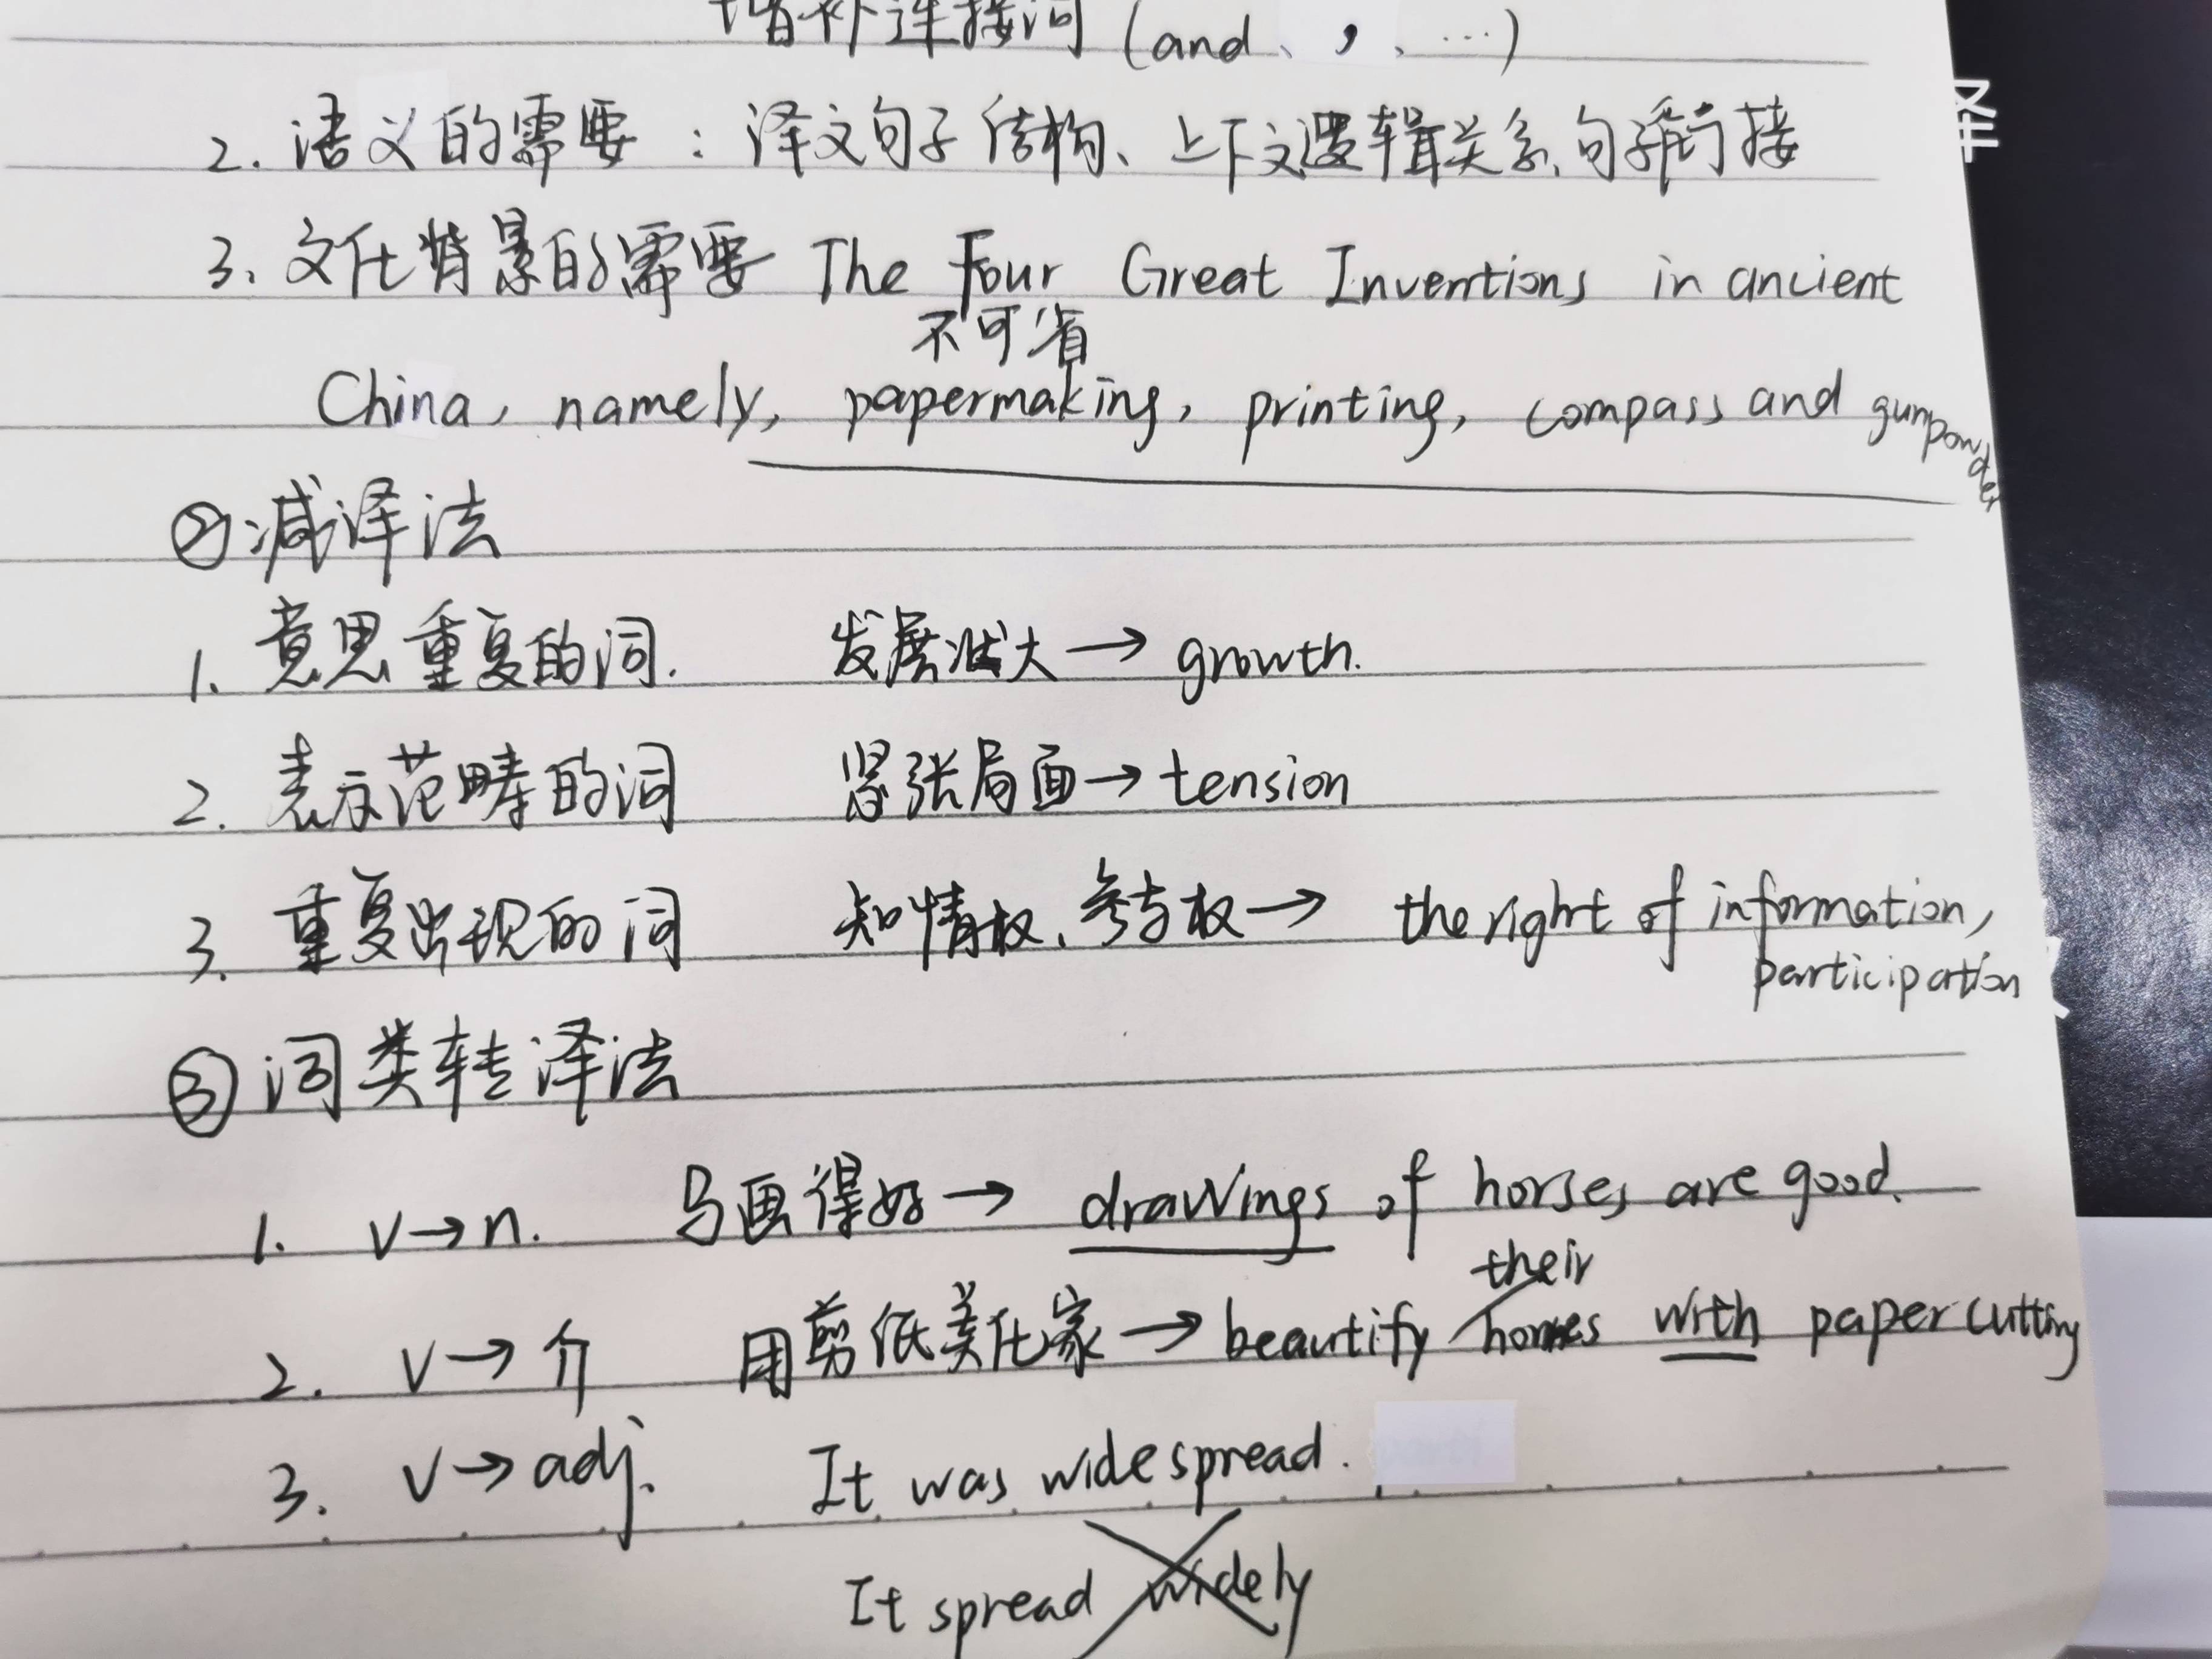 增补连接词 (and、,、…)
2. 语义的需要：译文句子结构、上下文逻辑关系、句子衔接
3. 文化背景的需要 The Four Great Inventions in ancient
不可省
China, namely, papermaking, printing, compass and gunpowder
② 减译法
1. 意思重复的词. 发展壮大→ growth.
2. 表示范畴的词 紧张局面→ tension
3. 重复出现的词 知情权、参与权→ the right of information,
participation
③ 词类转译法
1. v→n. 马画得好→ drawings of horses are good.
their
2. v→介 用剪纸美化家→ beautify homes with paper cutting
3. v→adj. It was widespread.
It spread widely